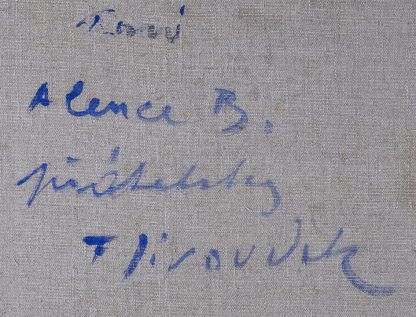 Alence B.
přátelsky
F Jiroudek